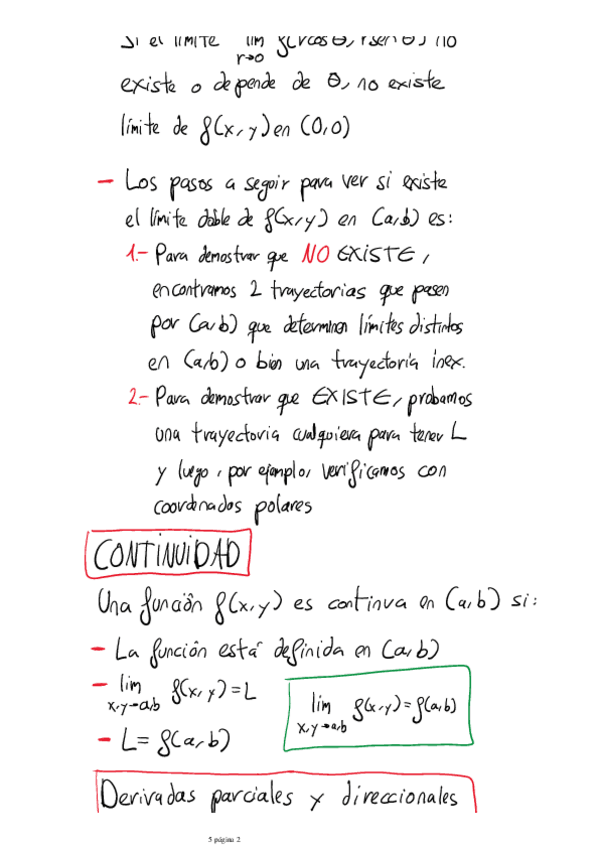 Si el límite lim f(rcosθ, rsenθ) no
r→0
existe o depende de θ, no existe
límite de f(x,y) en (0,0)
- Los pasos a seguir para ver si existe
el límite doble de f(x,y) en (a,b) es:
1.- Para demostrar que NO EXISTE,
encontramos 2 trayectorias que pasen
por (a,b) que determinen límites distintos
en (a,b) o bien una trayectoria inex.
2.- Para demostrar que EXISTE, probamos
una trayectoria cualquiera para tener L
y luego, por ejemplo, verificamos con
coordenadas polares
CONTINUIDAD
Una función f(x,y) es continua en (a,b) si:
- La función está definida en (a,b)
- lim f(x,y)=L
x,y→a,b
lim f(x,y)=f(a,b)
x,y→a,b
- L= f(a,b)
Derivadas parciales y direccionales
5 página 2